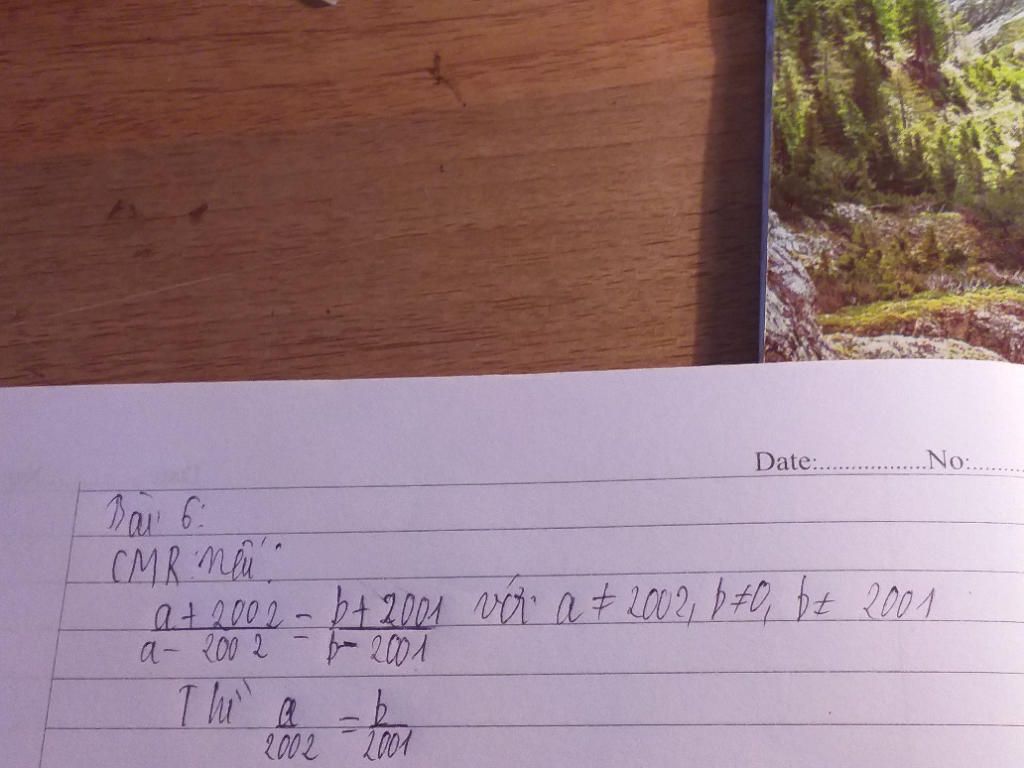 Date:..................No:.........
Bài 6:
CMR: Nếu:
a + 2002 / a - 2002 = b + 2001 / b - 2001 với a ≠ 2002, b ≠ 0, b ± 2001
Thì a / 2002 = b / 2001